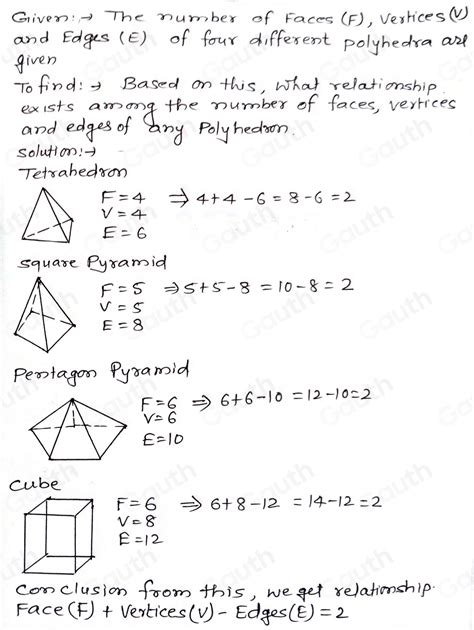 Given:→ The number of Faces (F), Vertices (V)
and Edges (E) of four different polyhedra are
given
To find:→ Based on this, what relationship
exists among the number of faces, vertices
and edges of any Polyhedron.
Solution:→
Tetrahedron
F=4 ⇒ 4+4-6=8-6=2
V=4
E=6
square Pyramid
F=5 ⇒5+5-8=10-8=2
V=5
E=8
Pentagon Pyramid
F=6 ⇒ 6+6-10=12-10=2
V=6
E=10
Cube
F=6 ⇒ 6+8-12=14-12=2
V=8
E=12
Conclusion from this, we get relationship.
Face(F)+Vertices(V)-Edges(E)=2
Gauth